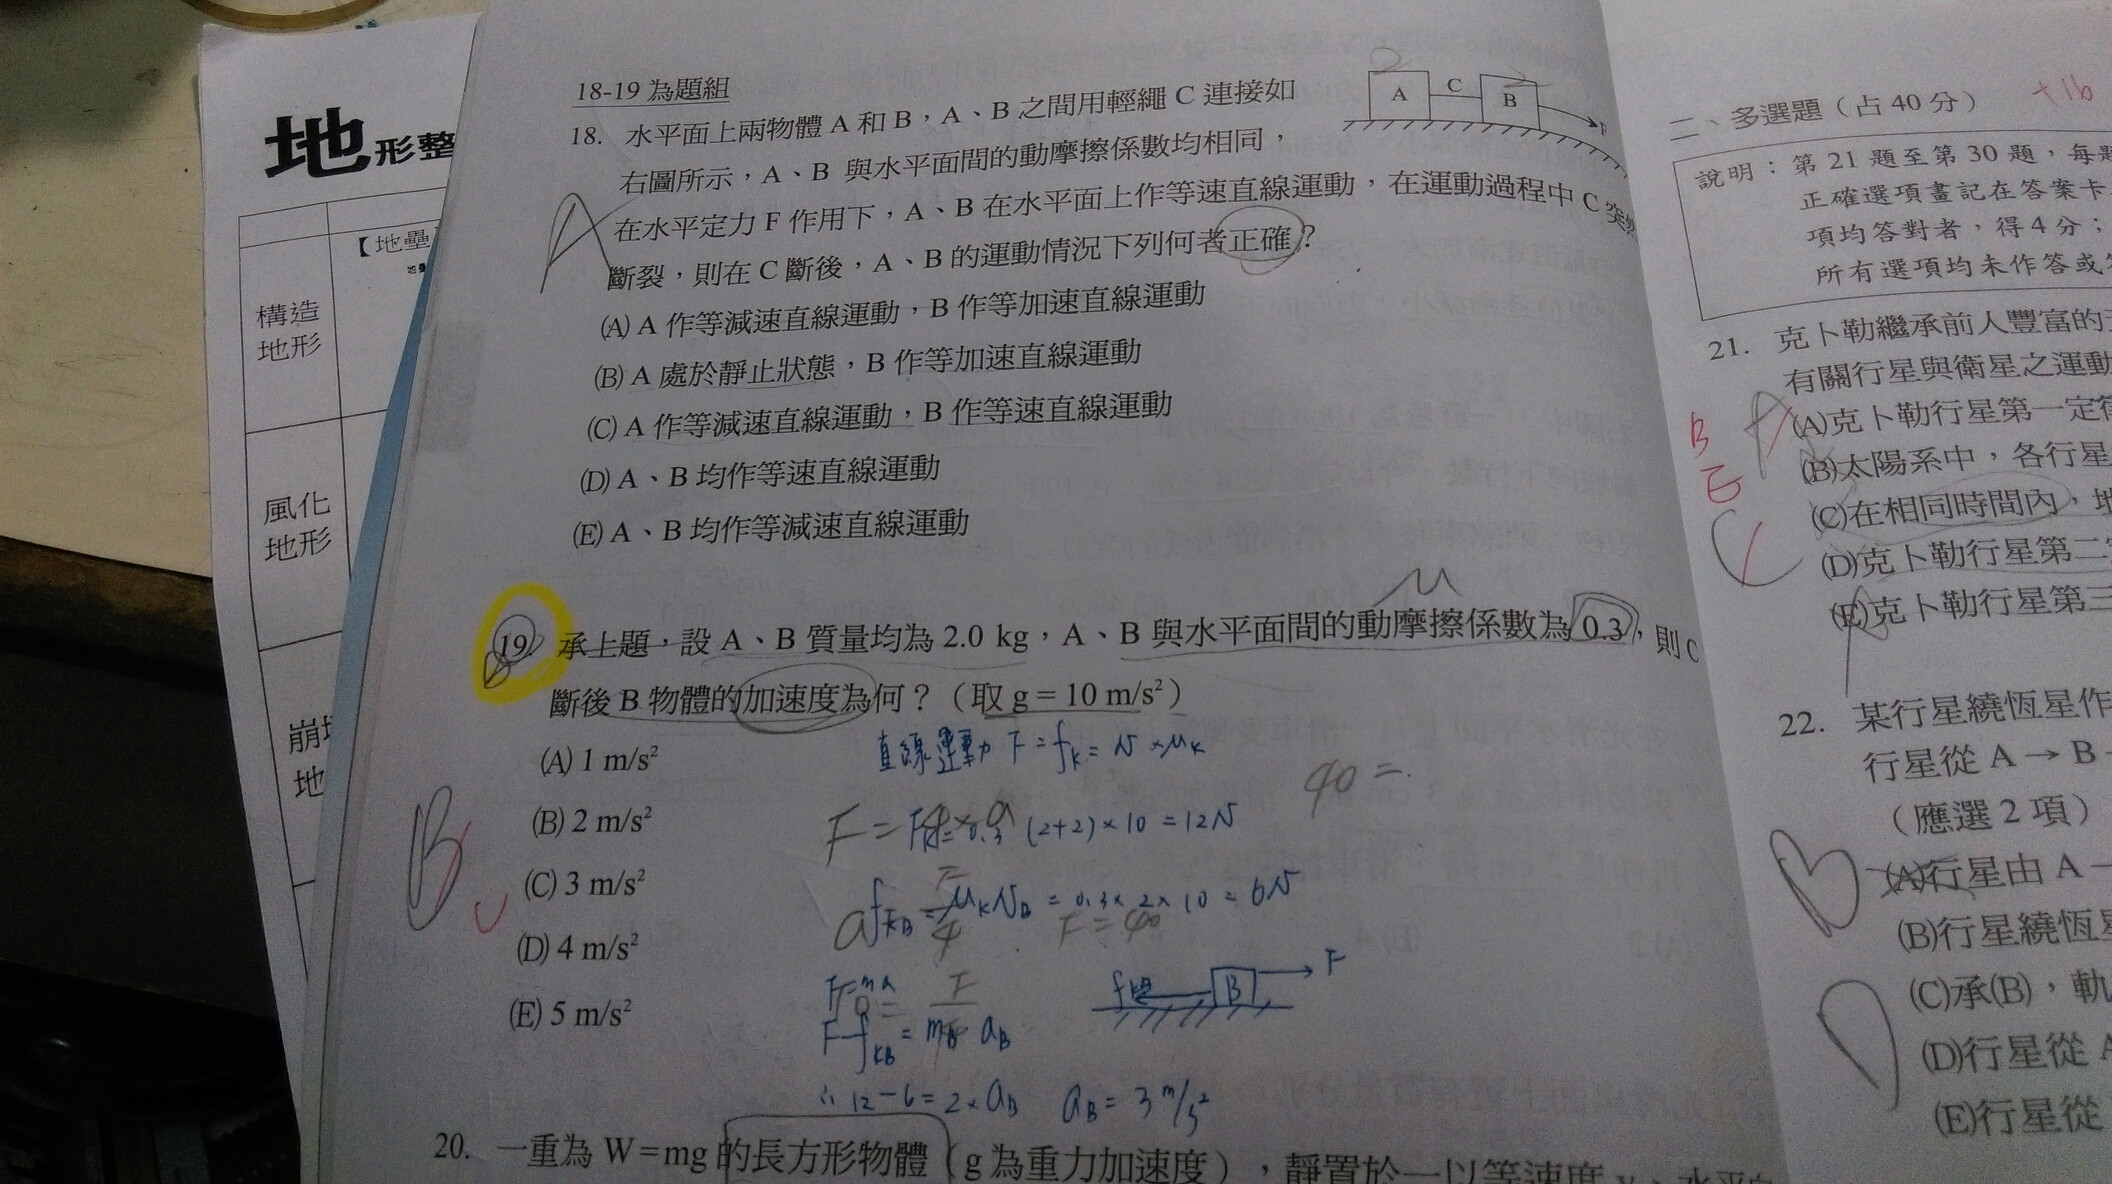 地形整
【地壘
構造
地形
風化
地形
崩
地
18-19 為題組
18. 水平面上兩物體 A 和 B，A、B 之間用輕繩 C 連接如
右圖所示，A、B 與水平面間的動摩擦係數均相同，
在水平定力 F 作用下，A、B 在水平面上作等速直線運動，在運動過程中 C 突然
斷裂，則在 C 斷後，A、B 的運動情況下列何者正確？
A C B F
A
(A) A 作等減速直線運動，B 作等加速直線運動
(B) A 處於靜止狀態，B 作等加速直線運動
(C) A 作等減速直線運動，B 作等速直線運動
(D) A、B 均作等速直線運動
(E) A、B 均作等減速直線運動
μ
19. 承上題，設 A、B 質量均為 2.0 kg，A、B 與水平面間的動摩擦係數為 0.3，則 C
斷後 B 物體的加速度為何？（取 g = 10 m/s²）
(A) 1 m/s²
(B) 2 m/s²
(C) 3 m/s²
(D) 4 m/s²
(E) 5 m/s²
B
直線運動 F = fk = N × μk
40 =
0.3 (2+2) × 10 = 12N
fkB = μk NB = 0.3 × 2 × 10 = 6N
F = 40
F = ma
F - fkB = mB aB
B F
∴ 12 - 6 = 2 × aB aB = 3 m/s²
20. 一重為 W = mg 的長方形物體（g 為重力加速度），靜置於一以等速度
二、多選題（占 40 分） +16
說明：第 21 題至第 30 題，每題
正確選項畫記在答案卡
項均答對者，得 4 分；
所有選項均未作答或
21. 克卜勒繼承前人豐富的
有關行星與衛星之運動
(A)克卜勒行星第一定律
(B)太陽系中，各行星
(C)在相同時間內，地
(D)克卜勒行星第二
(E)克卜勒行星第三
B
E
22. 某行星繞恆星作
行星從 A → B
（應選 2 項）
(A)行星由 A
(B)行星繞恆星
(C)承(B)，軌
(D)行星從 A
(E)行星從